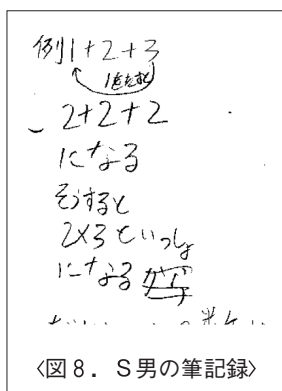 例1+2+3
1をたすと
2+2+2
になる
そうすると
2×3といっしょ
になる
〈図8．S男の筆記録〉